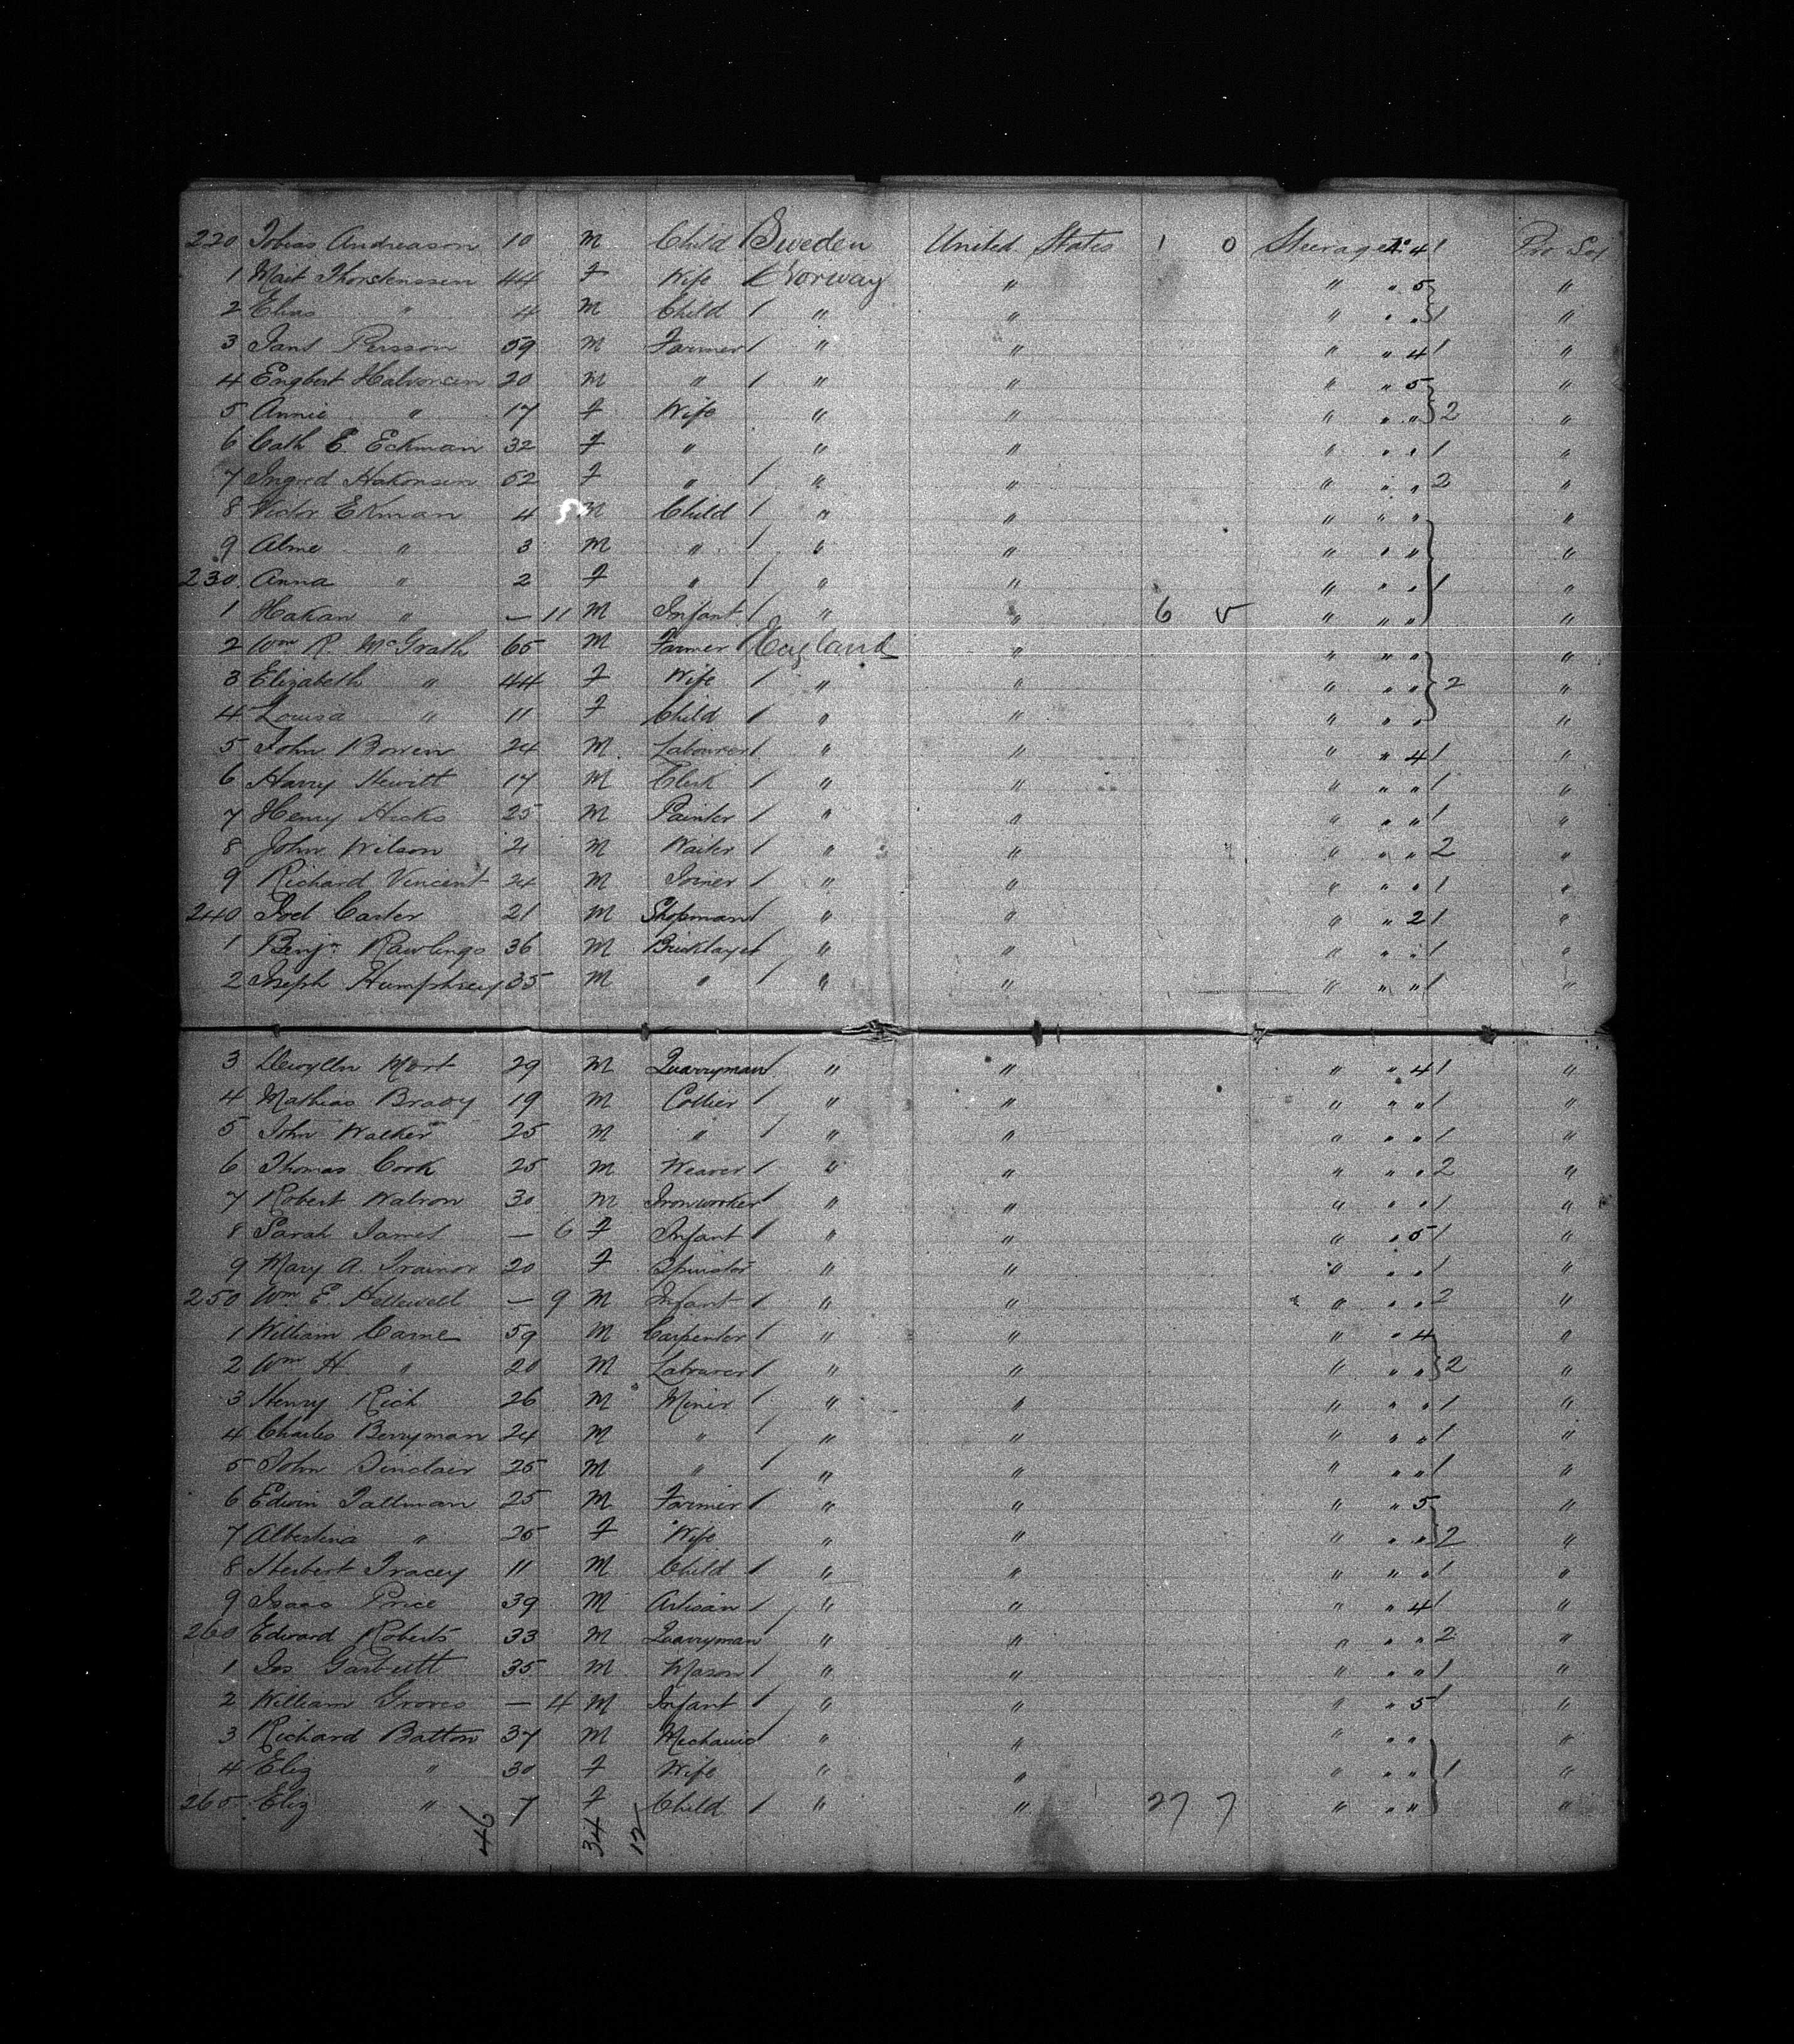 220 Tobias Andreason 10 M Child Sweden United States 1 0 Steerage 4 1 Pro Set
1 Thorstenssen 44 F Wife Norway " " " 5 "
2 Elias " 4 M Child / " " " " " 1 "
3 Persson 59 M Farmer / " " " " 4 1 "
4 Engbert Halvorsen 20 M " / " " " " 5 "
5 Annie " 17 F Wife " " " " " 2 "
6 Cath E Eckman 32 F " " " " " " 1 "
7 Ingred Hakonsen 52 F " / " " " " " 2 "
8 Victor Ekman 4 M Child / " " " " " "
9 Alme " 3 M " / " " " " " "
230 Anna " 2 F " / " " " " " 1 "
1 Hakan " — 11 M Infant / " " 6 5 " " " "
2 Wm R McGrath 65 M Farmer England " " " " "
3 Elizabeth " 44 F Wife / " " " " " 2 "
4 Louisa " 11 F Child / " " " " " "
5 John Bowen 24 M Labourer / " " " " 4 1 "
6 Harry Hewitt 17 M Clerk / " " " " " 1 "
7 Henry Hicks 25 M Painter / " " " " " 1 "
8 John Wilson 21 M Waiter / " " " " " 2 "
9 Richard Vincent 24 M Joiner / " " " " " 1 "
240 Joel Carter 21 M Shopman / " " " " 2 1 "
1 Benjn Rawlings 36 M Bricklayer " " " " " 1 "
2 Joseph Humphrey 35 M " / " " " " " 1 "
3 Mort 29 M Quarryman / " " " " 4 1 "
4 Mathias Brady 19 M Collier / " " " " " 1 "
5 John Walker 25 M " / " " " " " 1 "
6 Thomas Cook 25 M Weaver / " " " " " 2 "
7 Robert Watson 30 M Ironworker / " " " " " 1 "
8 Sarah James — 6 F Infant / " " " " 5 1 "
9 Mary A. Trainor 20 F Spinster " " " " " 1 "
250 Wm E. Hellewell — 9 M Infant / " " " " " 2 "
1 William Carne 59 M Carpenter / " " " " 4 "
2 Wm H. " 20 M Labourer / " " " " " 2 "
3 Henry Rich 26 M Miner / " " " " " 1 "
4 Charles Berryman 24 M " / " " " " " 1 "
5 John Sinclair 25 M " / " " " " " 1 "
6 Edwin Tallman 25 M Farmer / " " " " 5 "
7 Albertina " 25 F Wife " " " " " 2 "
8 Herbert Tracey 11 M Child / " " " " " 1 "
9 Isaac Price 39 M Artisan / " " " " 4 1 "
260 Edward Roberts 33 M Quarryman " " " " " 2 "
1 Jas Garbutt 35 M Mason / " " " " " 1 "
2 William Groves — 4 M Infant / " " " " 5 1 "
3 Richard Batton 37 M Mechanic / " " " " " "
4 Eliz " 30 F Wife " " " " " 1 "
265 Eliz " 7 F Child / " " 27 7 " " " "
46 34 12